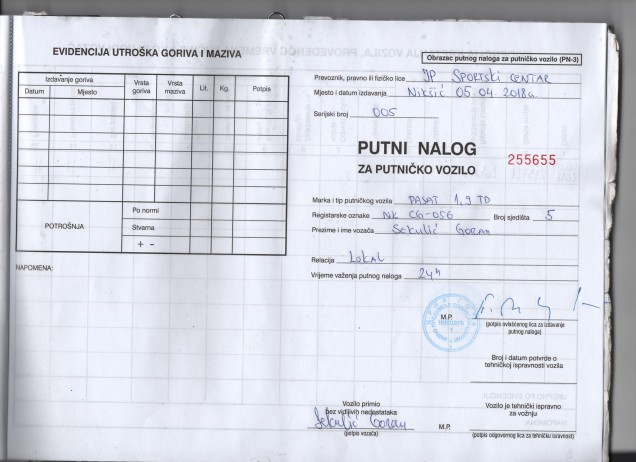 EVIDENCIJA UTROŠKA GORIVA I MAZIVA
Izdavanje goriva
Datum
Mjesto
Vrsta goriva
Vrsta maziva
Lit.
Kg.
Potpis
POTROŠNJA
Po normi
Stvarna
+ -
NAPOMENA:
Obrazac putnog naloga za putničko vozilo (PN-3)
Prevoznik, pravno ili fizičko lice JP SPORTSKI CENTAR
Mjesto i datum izdavanja Nikšić 05.04.2018g.
Serijski broj 005
PUTNI NALOG
ZA PUTNIČKO VOZILO
255655
Marka i tip putničkog vozila PASAT 1.9 TD
Registarske oznake NK CG-056 Broj sjedišta 5
Prezime i ime vozača Sekulić Goran
Relacija LOKAL
Vrijeme važenja putnog naloga 24h
M.P.
(potpis ovlašćenog lica za izdavanje
putnog naloga)
Broj i datum potvrde o
tehničkoj ispravnosti vozila
Vozilo primio
bez vidljivih nedostataka
Sekulić Goran
(potpis vozača)
M.P.
Vozilo je tehnički ispravno
za vožnju
(potpis odgovornog lica za tehničku isravnost)